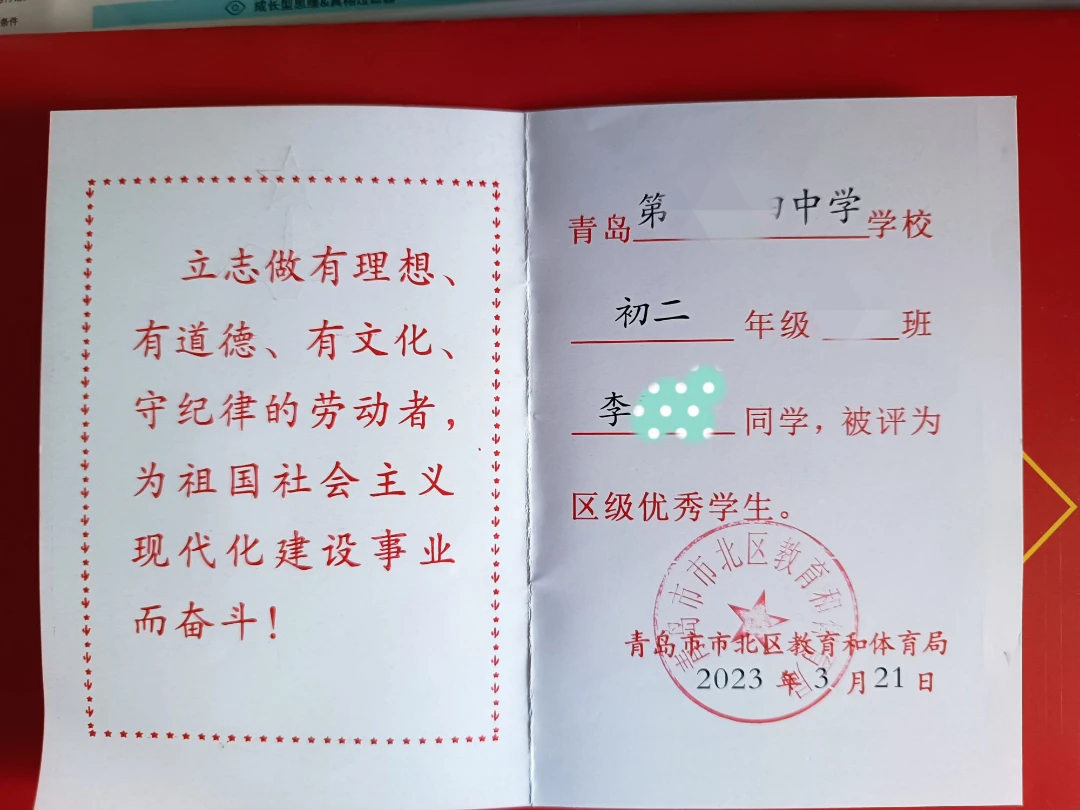 条件
成长型思维&真相过滤器
立志做有理想、
有道德、有文化、
守纪律的劳动者，
为祖国社会主义
现代化建设事业
而奋斗！
青岛第 中学学校
初二年级 班
李 同学，被评为
区级优秀学生。
青岛市市北区教育和体育局
青岛市市北区教育和体育局
2023年3月21日